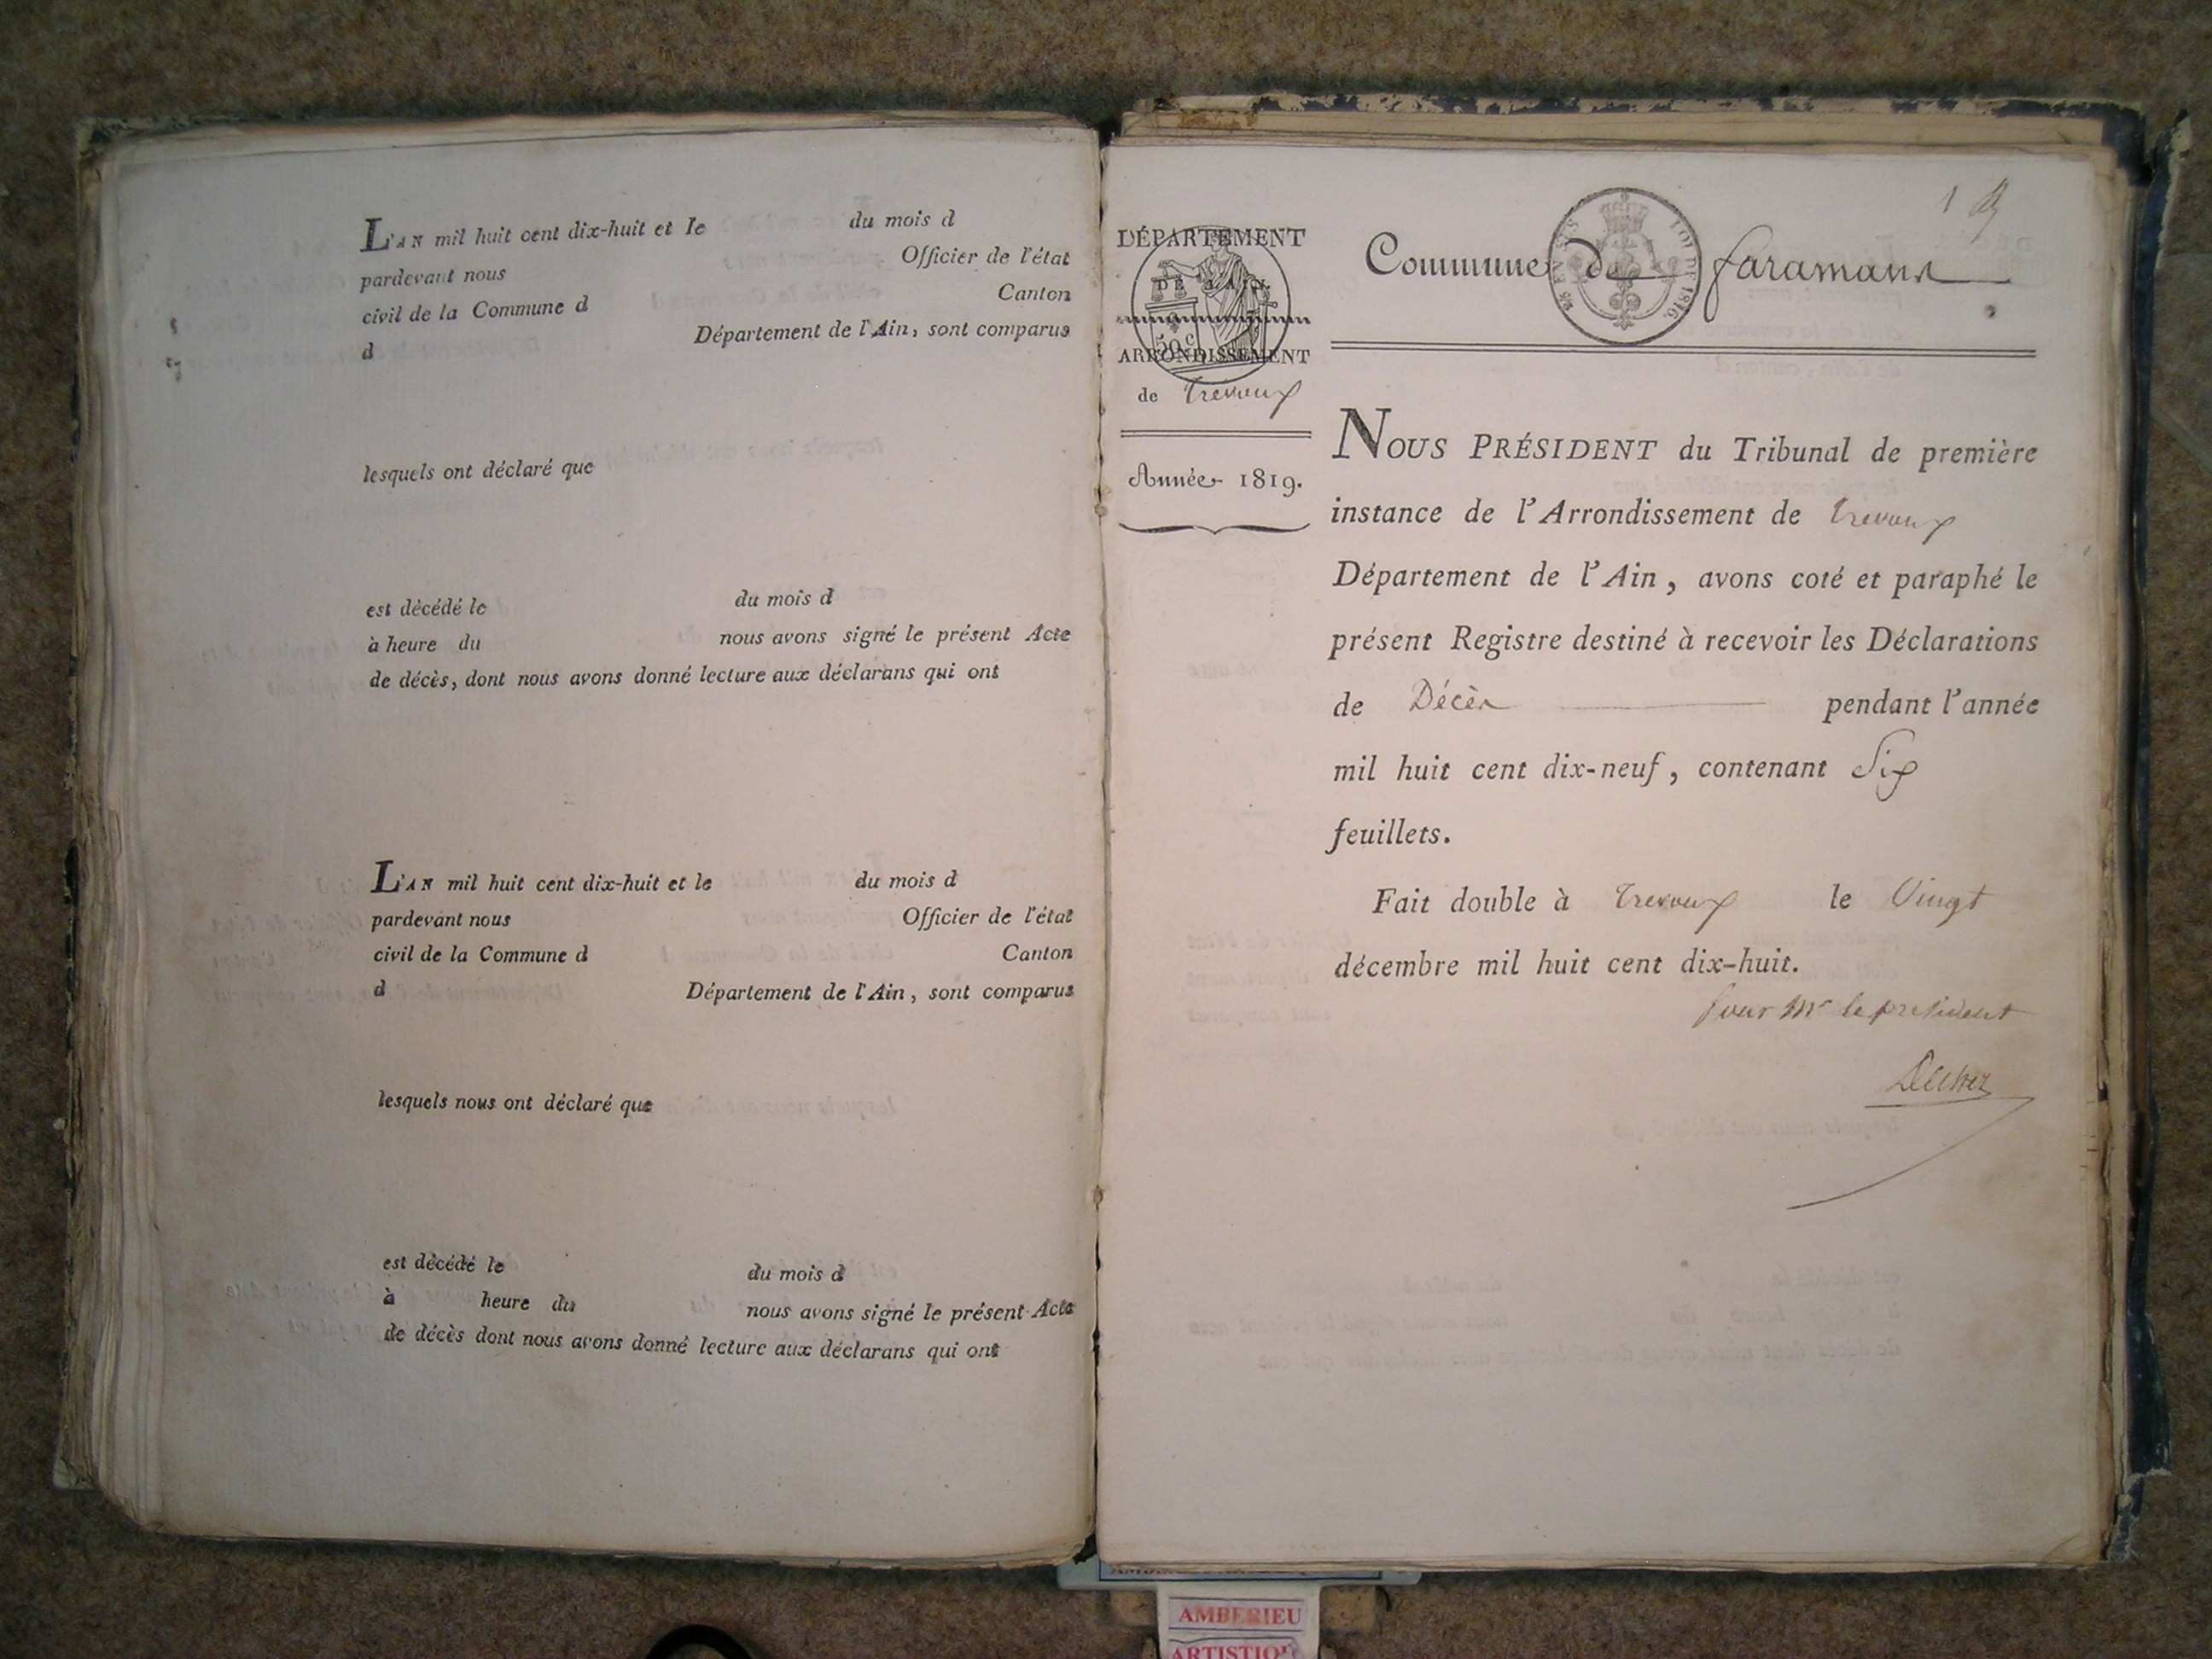 L'AN mil huit cent dix-huit et le du mois d
pardevant nous Officier de l'état
civil de la Commune d Canton
d Département de l'Ain, sont comparus
lesquels ont déclaré que
est décédé le du mois d
à heure du nous avons signé le présent Acte
de décès, dont nous avons donné lecture aux déclarans qui ont
L'AN mil huit cent dix-huit et le du mois d
pardevant nous Officier de l'état
civil de la Commune d Canton
d Département de l'Ain, sont comparus
lesquels nous ont déclaré que
est décédé le du mois d
à heure du nous avons signé le présent Acte
de décès dont nous avons donné lecture aux déclarans qui ont
DÉPARTEMENT
DE L'AIN.
50 c
ARRONDISSEMENT
de Trevoux
Année 1819.
1
Commune de faramans
LOI DE 1816.
NOUS PRÉSIDENT du Tribunal de première
instance de l'Arrondissement de Trevoux
Département de l'Ain, avons coté et paraphé le
présent Registre destiné à recevoir les Déclarations
de Décès pendant l'année
mil huit cent dix-neuf, contenant Six
feuillets.
Fait double à Trevoux le Vingt
décembre mil huit cent dix-huit.
pour Mr le president
AMBERIEU